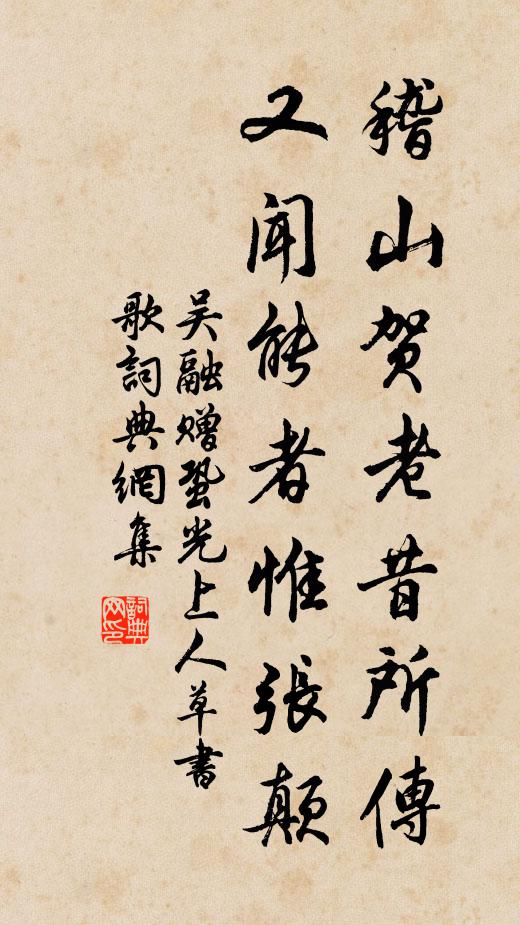 稽山贺老昔所傳
又闻能者惟張颠
吴融赠蛩光上人草書
歌詞典網集
詞典
网印